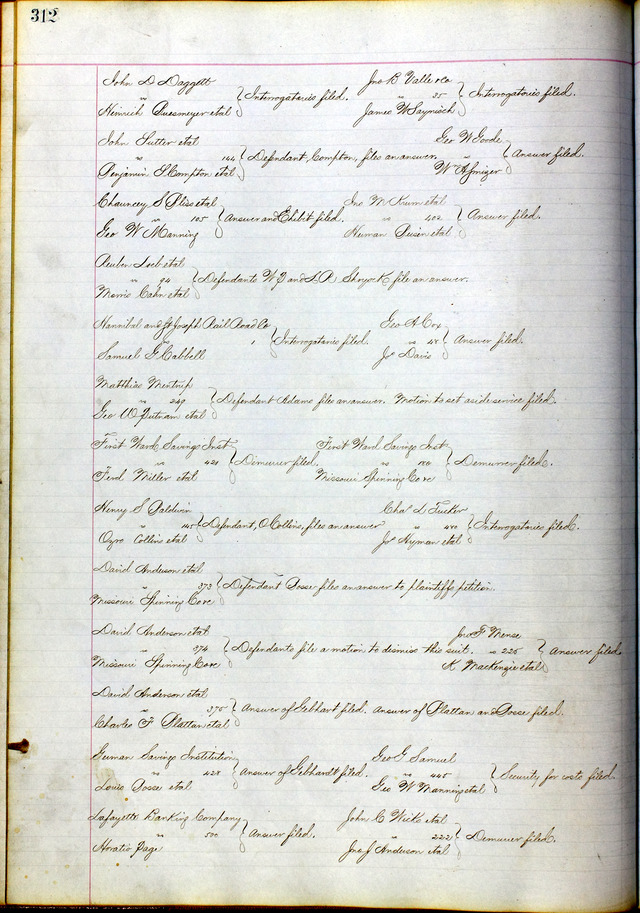 312
John D Daggett
vs
Heinrich Duesmeyer etal } Interrogatories filed.
Jno B Valle & Co
vs 35
James W } Interrogatories filed.
John Sutter etal
vs 144
Benjamin S Compton etal } Defendant, Compton, files an answer.
Geo W Goode
vs
W A } Answer filed.
Chauncey S etal
vs 105
Geo W Manning } Answer and Exhibit filed.
Jno M Krum etal
vs 402
etal } Answer filed.
Reuben Loeb etal
vs 94
Morris Cahn etal } Defendants W J and L R Shryock file an answer.
Hannibal and St Joseph Rail Road Co
1
Samuel G Cabbell } Interrogatories filed.
Geo A Cox
vs 48
Jno Davis } Answer filed.
Matthias
vs 249
Geo W Putnam etal } Defendant Adams files an answer. Motion to set aside service filed.
First Ward Savings Inst
vs 420
Ferd Miller etal } Demurrer filed.
First Ward Savings Inst
vs 180
Missouri Spinning Co &c } Demurrer filed.
Henry S Baldwin
vs 145
Collins etal } Defendant, O Collins, files an answer
Chas L Tucker
vs 470
Jos Hyman etal } Interrogatories filed.
David Anderson etal
373
Missouri Spinning Co &c } Defendant Dosse files an answer to plaintiffs petition.
David Anderson etal
374
Missouri Spinning Co &c } Defendants file a motion to dismiss this suit.
Jno F Mense
vs 225
K Mackenzie etal } Answer filed
David Anderson etal
375
Charles F Plattan etal } Answer of Gebhart filed. Answer of Plattan and Dosse filed.
German Savings Institution
vs 428
Louis Dosse etal } Answer of Gebhardt filed.
Geo G Samuel
vs 445
Geo W Manning etal } Security for costs filed.
Lafayette Banking Company
vs 500
Horatio Page } Answer filed.
John C Wick etal
vs 222
Jno J Anderson etal } Demurrer filed.